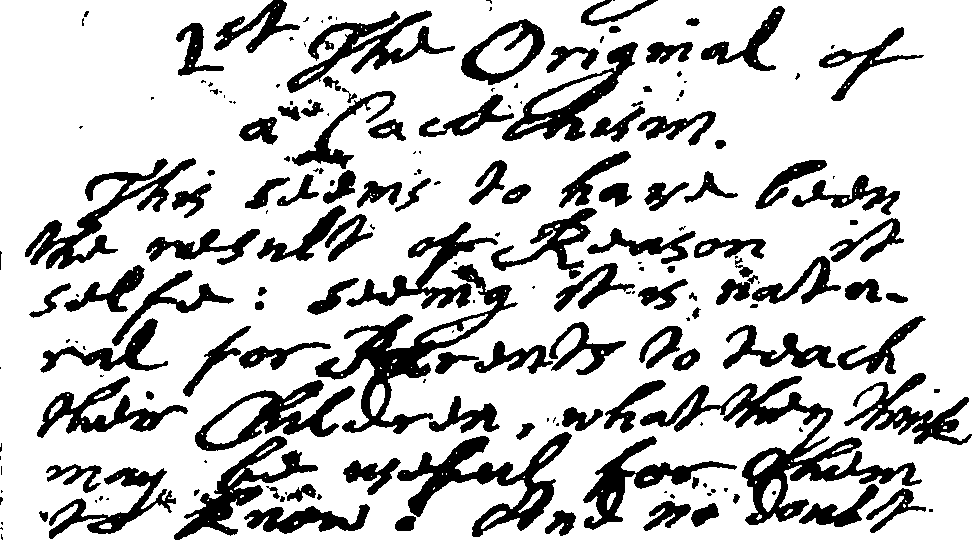 1st The Original of
a Cactchism.
This seems to have been
the result of Reason it
selfe: seeing it is natu-
ral for Parents to teach
their Children, what they think
may be usefull for them
to know: And no doubt